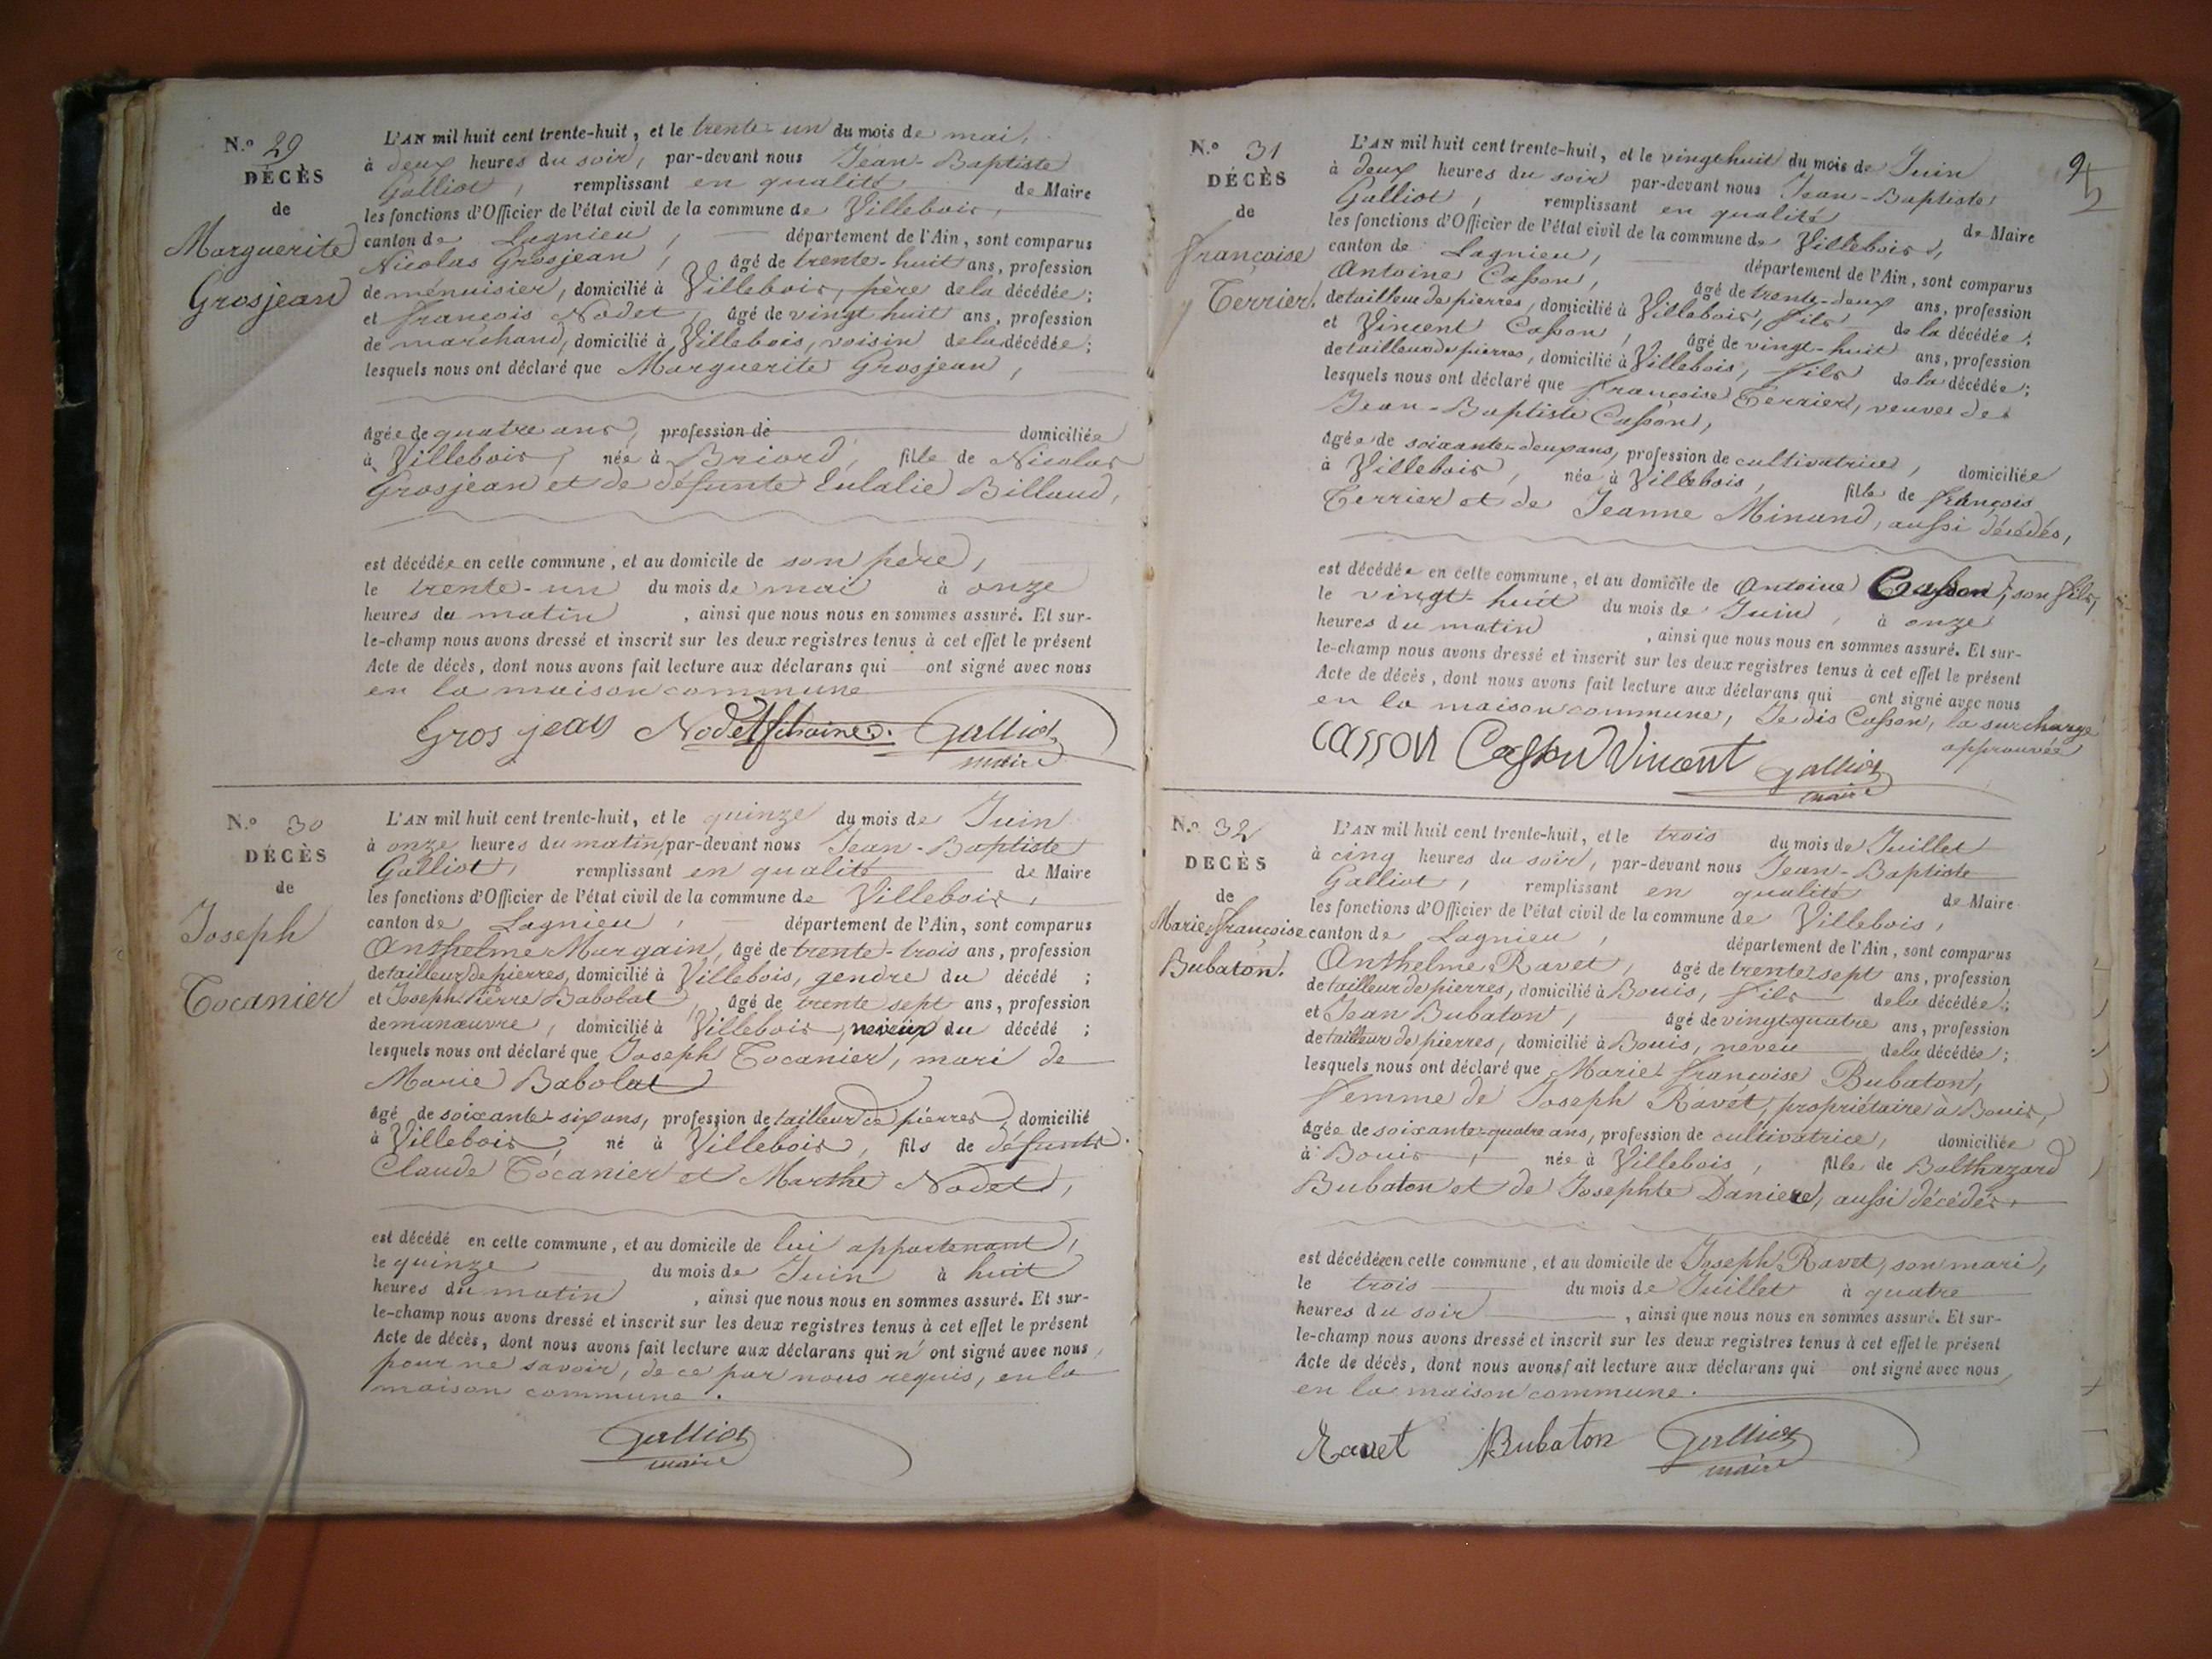 N.o 29
DÉCÈS
de
Marguerite
Grosjean
L'AN mil huit cent trente-huit, et le trente-un du mois de mai,
à deux heures du soir, par-devant nous Jean-Baptiste
Galliot, remplissant en qualité de Maire
les fonctions d'Officier de l'état civil de la commune de Villebois,
canton de Lagnieu, département de l'Ain, sont comparus
Nicolas Grosjean, âgé de trente-huit ans, profession
de ménuisier, domicilié à Villebois, père de la décédée;
et françois Nodet, âgé de vingt huit ans, profession
de marchand, domicilié à Villebois, voisin de la décédée;
lesquels nous ont déclaré que Marguerite Grosjean,
âgée de quatre ans, profession de domiciliée
à Villebois, née à Briord, fille de Nicolas
Grosjean et de défunte Eulalie Billaud,
est décédée en cette commune, et au domicile de son père,
le trente-un du mois de mai à onze
heures du matin, ainsi que nous nous en sommes assuré. Et sur-
le-champ nous avons dressé et inscrit sur les deux registres tenus à cet effet le présent
Acte de décès, dont nous avons fait lecture aux déclarans qui ont signé avec nous
en la maison commune
Gros jean Nodet Galliot
maire
N.o 30
DÉCÈS
de
Joseph
Tocanier
L'AN mil huit cent trente-huit, et le quinze du mois de Juin
à onze heures du matin, par-devant nous Jean-Baptiste
Galliot, remplissant en qualité de Maire
les fonctions d'Officier de l'état civil de la commune de Villebois,
canton de Lagnieu, département de l'Ain, sont comparus
Anthelme Murgain, âgé de trente-trois ans, profession
de tailleur de pierres, domicilié à Villebois, gendre du décédé;
et Joseph Pierre Babolat, âgé de trente sept ans, profession
de manœuvre, domicilié à Villebois, neveux du décédé;
lesquels nous ont déclaré que Joseph Tocanier, mari de
Marie Babolat
âgé de soixante-six ans, profession de tailleur de pierres, domicilié
à Villebois, né à Villebois, fils de défunts
Claude Tocanier et Marthe Nodet,
est décédé en cette commune, et au domicile de lui appartenant,
le quinze du mois de Juin à huit
heures du matin, ainsi que nous nous en sommes assuré. Et sur-
le-champ nous avons dressé et inscrit sur les deux registres tenus à cet effet le présent
Acte de décès, dont nous avons fait lecture aux déclarans qui n'ont signé avec nous,
pour ne savoir, de ce par nous requis, en la
maison commune.
Galliot
maire
N.o 31
DÉCÈS
de
françoise
Terrier.
L'AN mil huit cent trente-huit, et le vingt-huit du mois de Juin
à deux heures du soir par-devant nous Jean-Baptiste
Galliot, remplissant en qualité de Maire
les fonctions d'Officier de l'état civil de la commune de Villebois,
canton de Lagnieu, département de l'Ain, sont comparus
Antoine Casson, âgé de trente-deux ans, profession
de tailleur de pierres, domicilié à Villebois, fils de la décédée;
et Vincent Casson, âgé de vingt-huit ans, profession
de tailleur de pierres, domicilié à Villebois, fils de la décédée;
lesquels nous ont déclaré que françoise Terrier, veuve de
Jean-Baptiste Casson,
âgée de soixante-deux ans, profession de cultivatrice, domiciliée
à Villebois, née à Villebois, fille de françois
Terrier et de Jeanne Minand, aussi décédés,
est décédée en cette commune, et au domicile de Antoine Casson, son fils,
le vingt-huit du mois de Juin, à onze
heures du matin, ainsi que nous nous en sommes assuré. Et sur-
le-champ nous avons dressé et inscrit sur les deux registres tenus à cet effet le présent
Acte de décès, dont nous avons fait lecture aux déclarans qui ont signé avec nous
en la maison commune, Je dis Casson, la surcharge
approuvée
casson Casson Vincent Galliot
maire
N.o 32
DECÈS
de
Marie françoise
Bubaton.
L'AN mil huit cent trente-huit, et le trois du mois de Juillet
à cinq heures du soir, par-devant nous Jean-Baptiste
Galliot, remplissant en qualité de Maire
les fonctions d'Officier de l'état civil de la commune de Villebois,
canton de Lagnieu, département de l'Ain, sont comparus
Anthelme Ravet, âgé de trente sept ans, profession
de tailleur de pierres, domicilié à Bouis, fils de la décédée;
et Jean Bubaton, âgé de vingt quatre ans, profession
de tailleur de pierres, domicilié à Bouis, neveu de la décédée;
lesquels nous ont déclaré que Marie françoise Bubaton,
femme de Joseph Ravet, propriétaire à Bouis,
âgée de soixante-quatre ans, profession de cultivatrice, domiciliée
à Bouis, née à Villebois, fille de Balthazard
Bubaton et de Josephte Daniere, aussi décédés,
est décédée en cette commune, et au domicile de Joseph Ravet, son mari,
le trois du mois de Juillet à quatre
heures du soir, ainsi que nous nous en sommes assuré. Et sur-
le-champ nous avons dressé et inscrit sur les deux registres tenus à cet effet le présent
Acte de décès, dont nous avons fait lecture aux déclarans qui ont signé avec nous
en la maison commune.
Ravet Bubaton Galliot
maire